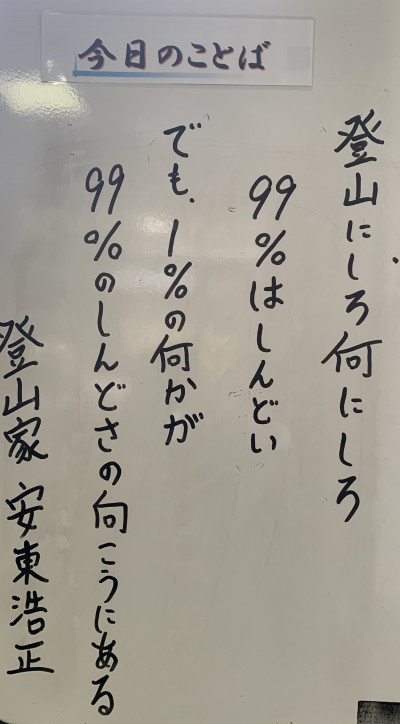 今日のことば
登山にしろ何にしろ
99%はしんどい
でも、1%の何かが
99%のしんどさの向こうにある
登山家 安東浩正